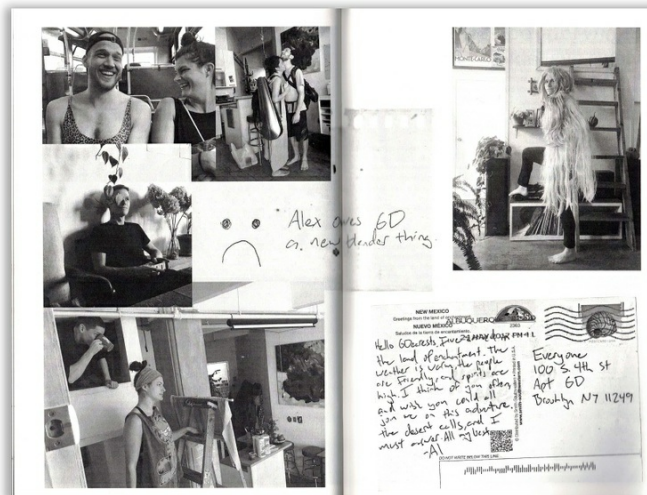 MONTE-CARLO
Alex owes 6D
a new blender thing.
NEW MEXICO
Greetings from the land of
ALBUQUERQUE
NUEVO MÉXICO
Saludos de la tierra de encantamiento.
MAY 2017 PM 4 L
Hello 6Derests, I've
the land of enchantment. The
weather is warm, the people
are friendly and spirits are
high. I think of you often,
and wish you could all
join me on this adventure.
The desert calls, and I
must answer. All my best,
-Al
Everyone
100 S. 4th St
Apt 6D
Brooklyn NY 11249
DO NOT WRITE BELOW THIS LINE